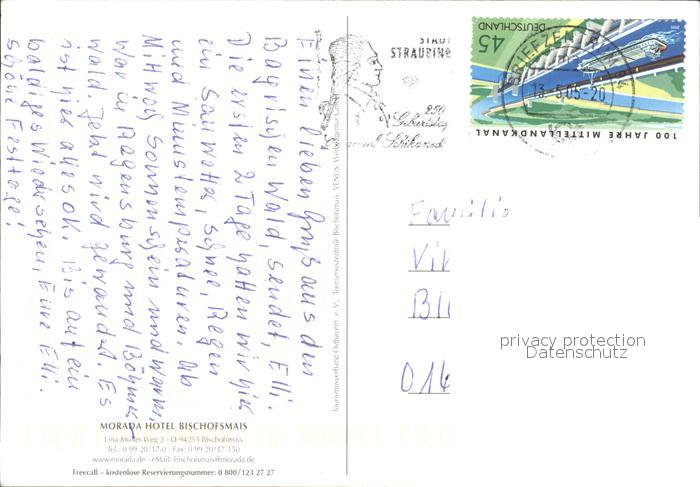 Einen lieben Gruß aus den
Bayrischen Wald, sendet, Elli.
Die ersten 2 Tage hatten wir hier
ein Sauwetter, Schnee, Regen
und Minustemperaturen. Ab
Mittwoch Sonnenschein und warm,
war in Regensburg und Böhmer-
wald. Jetzt wird gewandert. Es
ist hier alles ok. Bis auf ein
baldiges Wiedersehen, Eure Elli.
Schöne Festtage!
MORADA HOTEL BISCHOFSMAIS
Lina-Müller-Weg 3 · D-94253 Bischofsmais
Tel.: 0 99 20/17-0 · Fax: 0 99 20/17-150
www.morada.de · eMail: bischofsmais@morada.de
Freecall – kostenlose Reservierungsnummer: 0 800/123 27 27
Tourismusverband Ostbayern e. V., Tourismuszentrale Bischofsmais, VENUS
STADT
STRAUBING
250.
Geburtstag
Schikaned
45
DEUTSCHLAND
100 JAHRE MITTELLANDKANAL
BRIEFZEN
13.5.05-20
Familie
Vi
Bl
016
privacy protection
Datenschutz